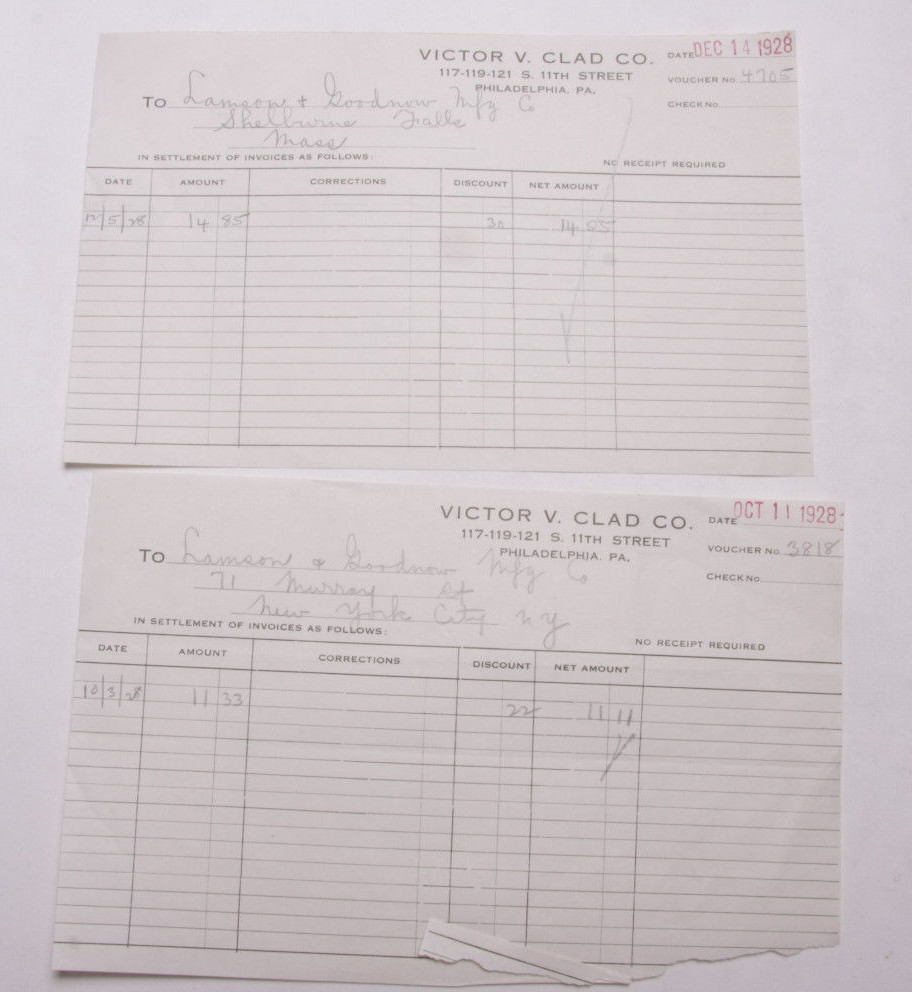 VICTOR V. CLAD CO.
DATE DEC 14 1928
117-119-121 S. 11TH STREET
VOUCHER No. 4705
PHILADELPHIA, PA.
CHECK No.
TO Lamson & Goodnow Mfg Co
Shelburne Falls
Mass
IN SETTLEMENT OF INVOICES AS FOLLOWS:
NO RECEIPT REQUIRED
DATE AMOUNT CORRECTIONS DISCOUNT NET AMOUNT
12/5/28 14 85 30 14 55
VICTOR V. CLAD CO.
DATE OCT 11 1928
117-119-121 S. 11TH STREET
VOUCHER No. 3818
PHILADELPHIA, PA.
CHECK No.
TO Lamson & Goodnow Mfg Co
71 Murray St
New York City NY
IN SETTLEMENT OF INVOICES AS FOLLOWS:
NO RECEIPT REQUIRED
DATE AMOUNT CORRECTIONS DISCOUNT NET AMOUNT
10/3/28 11 33 22 11 11